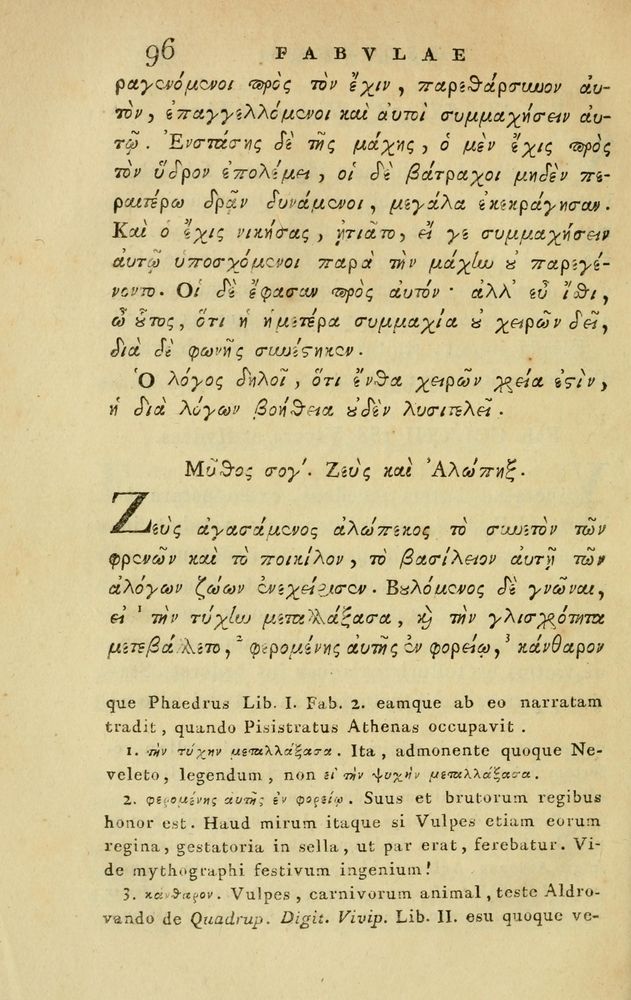 96 FABVLAE
ραγενόμενοι πρὸς τὸν ἔχιν, παρεθάρσυνον αὐ-
τὸν, ἐπαγγελλόμενοι καὶ αὐτοὶ συμμαχήσειν αὐ-
τῷ. Ἐνστάσης δὲ τῆς μάχης, ὁ μὲν ἔχις πρὸς
τὸν ὕδρον ἐπολέμει, οἱ δὲ βάτραχοι μηδὲν πε-
ραιτέρω δρᾶν δυνάμενοι, μεγάλα ἐκεκράγησαν.
Καὶ ὁ ἔχις νικήσας, ᾐτιᾶτο, εἴ γε συμμαχήσειν
αὐτῷ ὑποσχόμενοι παρὰ τὴν μάχην οὐ παρεγέ-
νοντο. Οἱ δὲ ἔφασαν πρὸς αὐτόν· ἀλλ' εὖ ἴθι,
ὦ οὗτος, ὅτι ἡ ἡμετέρα συμμαχία οὐ χειρῶν δεῖ,
διὰ δὲ φωνῆς συνέστηκεν.
Ὁ λόγος δηλοῖ, ὅτι ἔνθα χειρῶν χρεία ἐστὶν,
ἡ διὰ λόγων βοήθεια οὐδὲν λυσιτελεῖ.
Μῦθος σογ'. Ζεὺς καὶ Ἀλώπηξ.
Ζεὺς ἀγασάμενος ἀλώπεκος τὸ συνετὸν τῶν
φρενῶν καὶ τὸ ποικίλον, τὸ βασίλειον αὐτῇ τῶν
ἀλόγων ζώων ἐνεχείρισεν. Βουλόμενος δὲ γνῶναι,
εἰ ¹ τὴν τύχην μεταλλάξασα, καὶ τὴν γλισχρότητα
μετεβάλλετο, ² φερομένης αὐτῆς ἐν φορείῳ, ³ κάνθαρον
que Phaedrus Lib. I. Fab. 2. eamque ab eo narratam
tradit, quando Pisistratus Athenas occupavit.
1. τὴν τύχην μεταλλάξασα. Ita, admonente quoque Ne-
veleto, legendum, non εἰ τὴν ψυχὴν μεταλλάξασα.
2. φερομένης αὐτῆς ἐν φορείῳ. Suus et brutorum regibus
honor est. Haud mirum itaque si Vulpes etiam eorum
regina, gestatoria in sella, ut par erat, ferebatur. Vi-
de mythographi festivum ingenium!
3. κάνθαρον. Vulpes, carnivorum animal, teste Aldro-
vando de Quadrup. Digit. Vivip. Lib. II. esu quoque ve-